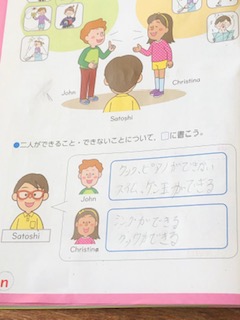 John
Christina
Satoshi
●二人ができること・できないことについて,□に書こう。
クック、ピアノができない
スイム、ケンドーができる
John
シングができる
クックができる
Christina
Satoshi